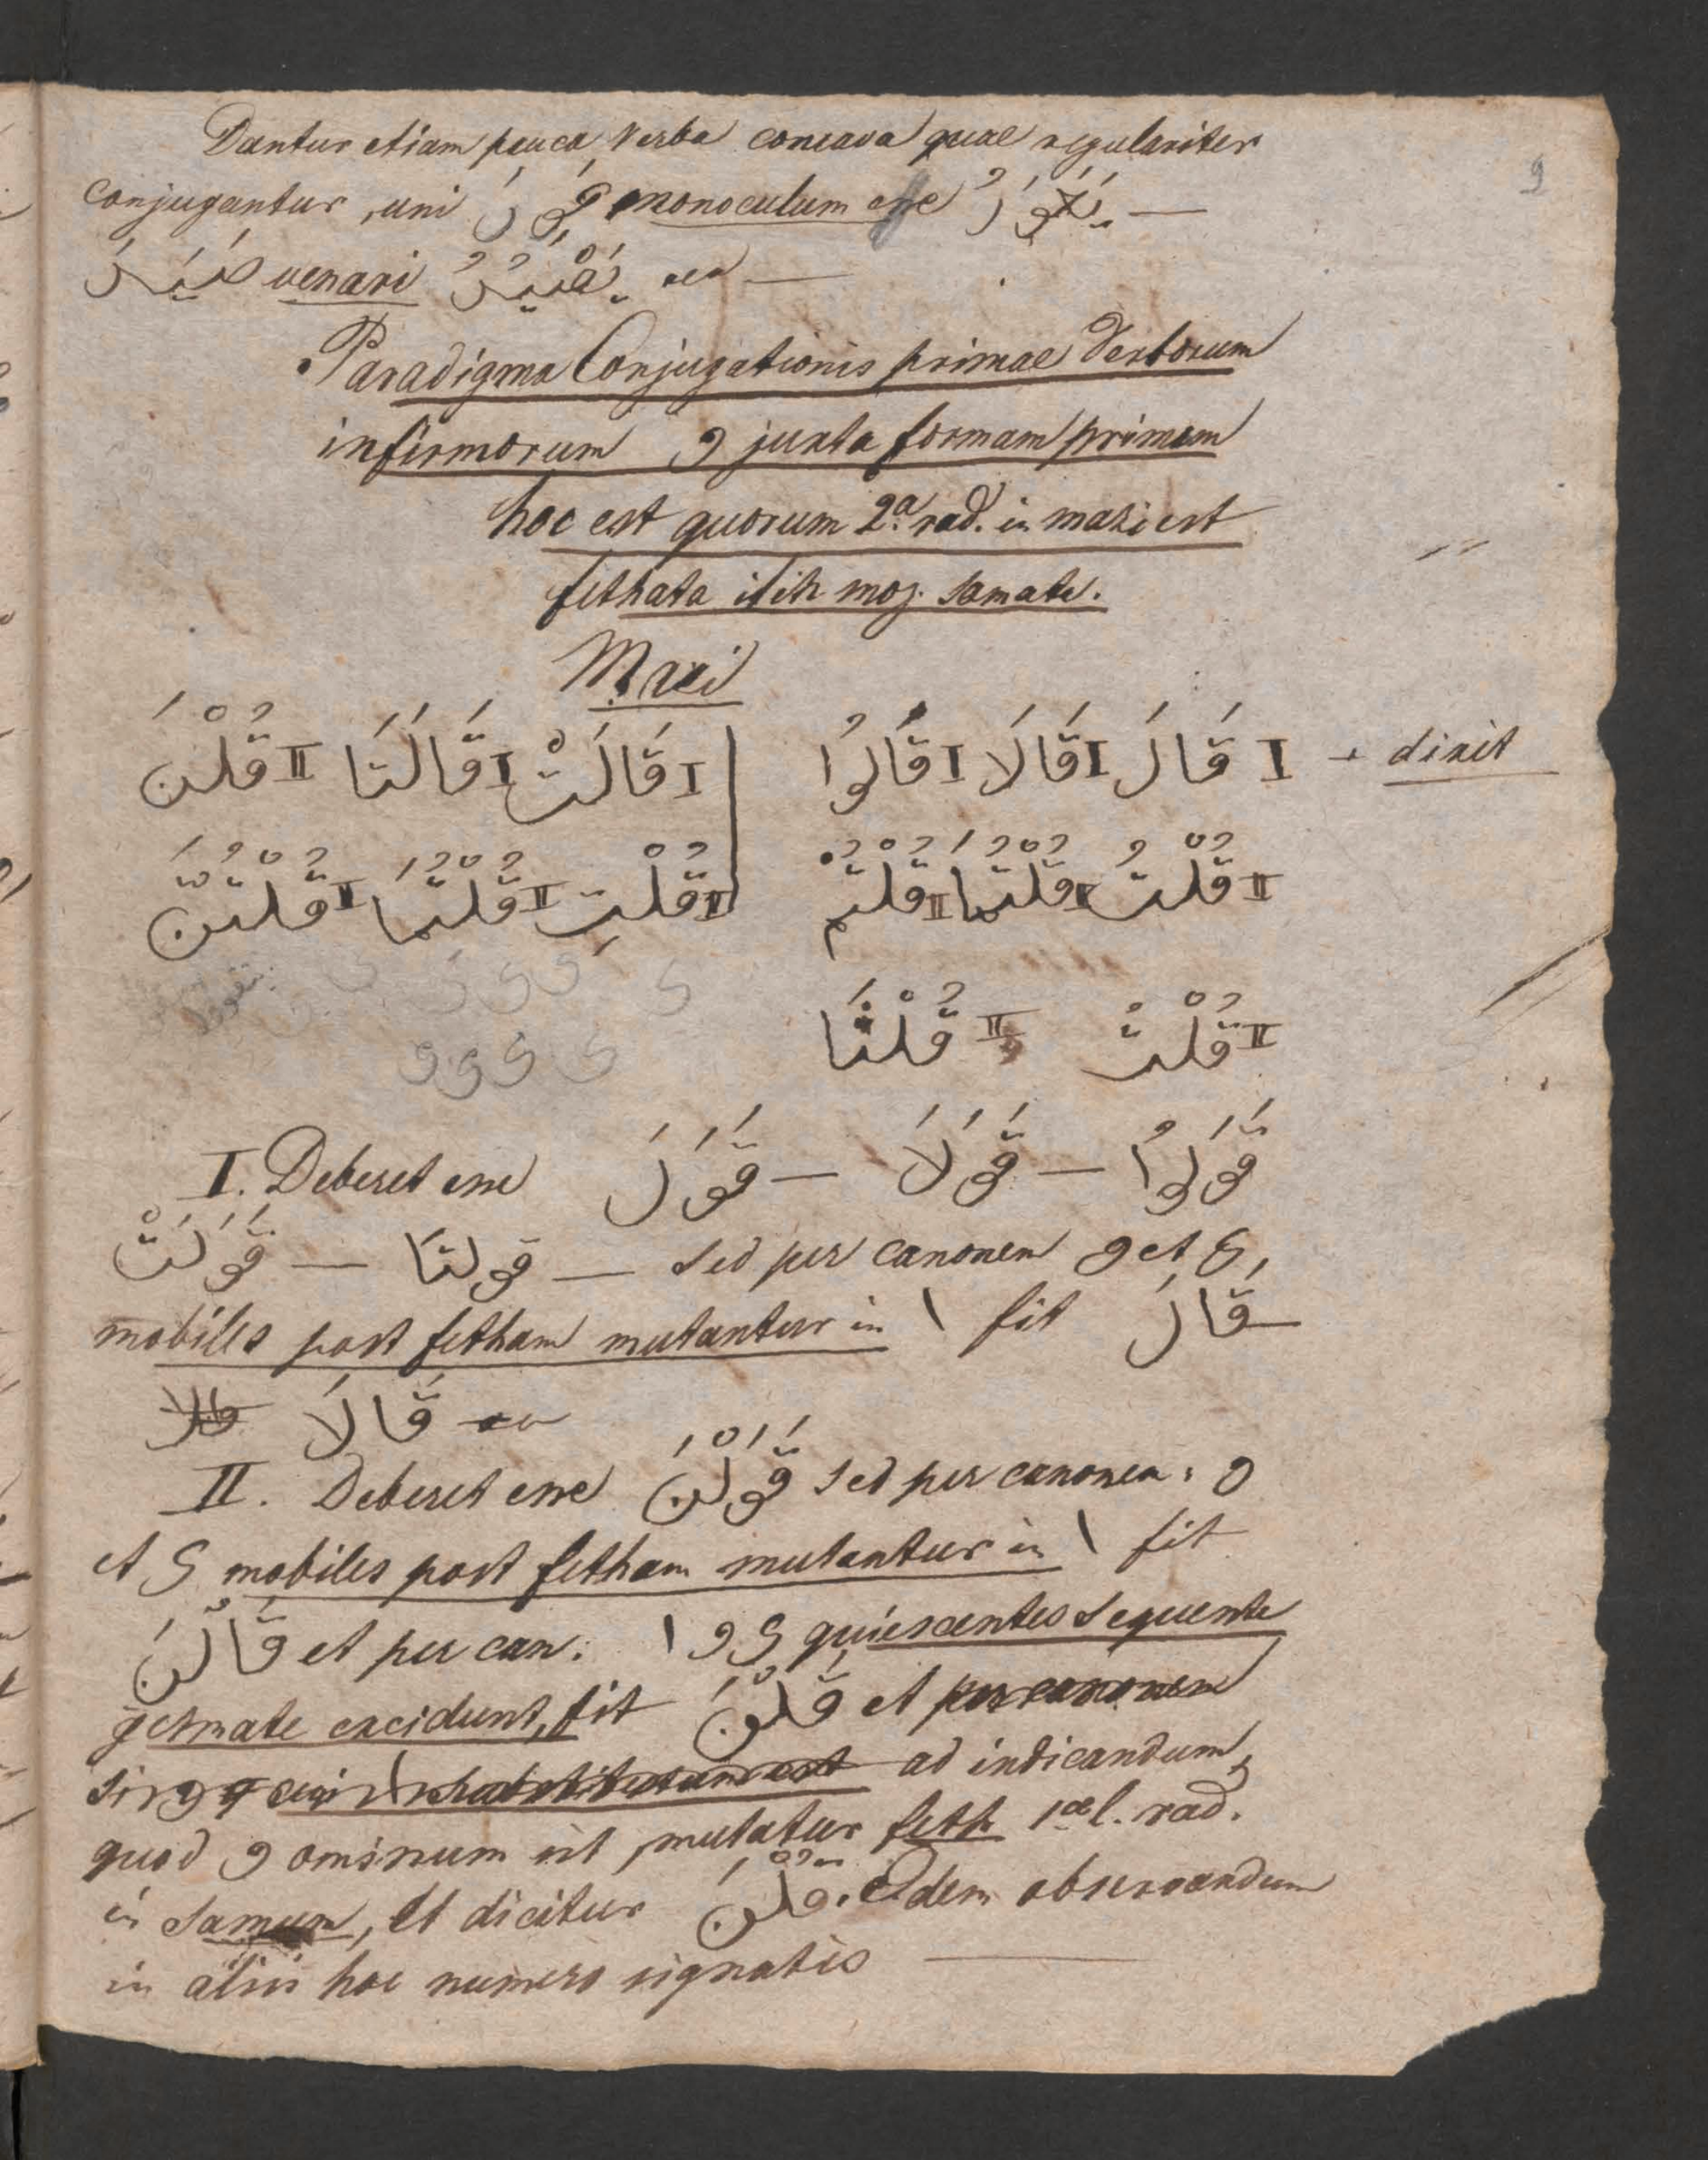 9
Dantur etiam pauca Verba concava quae regulariter
conjugantur, uni عَوِرَ monoculum esse يَعْوَرُ —
صَيَدَ venari يَصْيُدُ —
Paradigma Conjugationis primae Verborum
infirmorum و juxta formam primam
hoc est quorum 2.a rad. in mazi est
fethata it in moz. damata.
Mazi
I قَالَ I قَالَا I قَالُوا | I قَالَتْ I قَالَتَا II قُلْنَ
dixit
II قُلْتَ II قُلْتُمَا II قُلْتُمْ | II قُلْتِ II قُلْتُمَا II قُلْتُنَّ
II قُلْتُ II قُلْنَا
I. Deberet esse قَوَلَ — قَوَلَا — قَوَلُوا
قَوَلَتْ — قولتا — sed per canonem و et ي
mobiles post fetham mutantur in ا fit قَالَ
قَالَا
II. Deberet esse قَوَلْنَ sed per canonem: و
et ي mobiles post fetham mutantur in ا fit
قَالْنَ et per can: ا و ي quiescentes sequente
gesmate excidunt, fit قَلْنَ et per canonem
ad indicandum,
quod و ominum sit, mutatur feth 1ae l. rad.
in damam, et dicitur قُلْنَ. Idem observandum
in aliis hoc numero signatis —